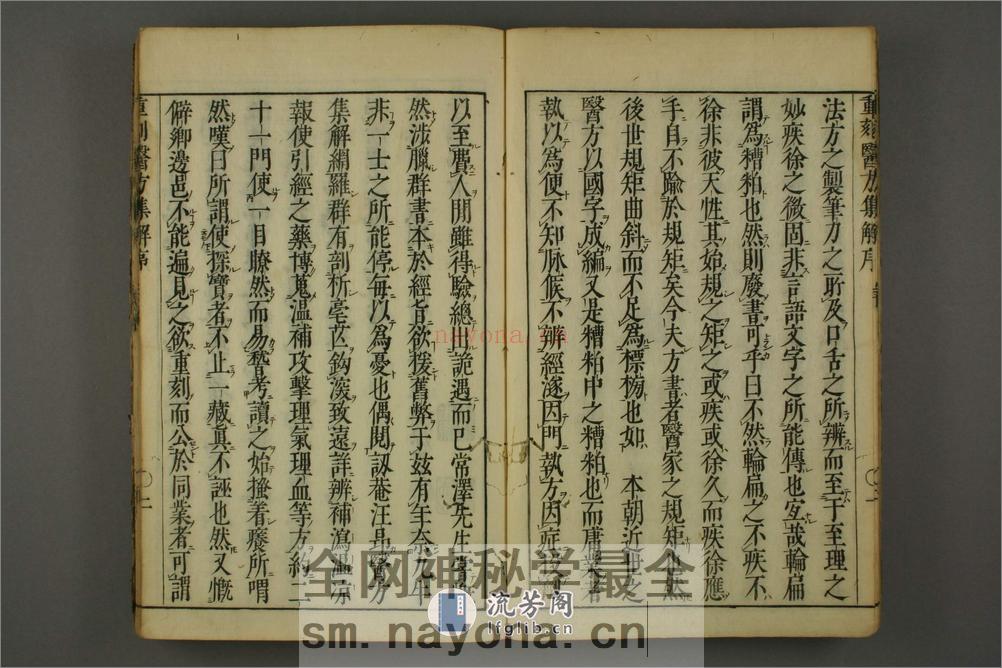 重刻醫方集解序
法方之製筆力之所及口舌之所辨而至于至理之
妙疾徐之微固非言語文字之所能傳也宜哉輪扁
謂為糟粕也然則廢書可乎曰不然輪扁之不疾不
徐非彼天性其始規之矩之或疾或徐久而疾徐應
手自不踰於規矩矣今夫方書者醫家之規矩也然
後世規矩曲斜而不足為標㮄也如 本朝近世之
醫方以國字成編又是糟粕中之糟粕也而庸醫者
執以為便不知脉候不辨經因門執方因症投
以至費人間雖得驗總出詭遇而已常澤先生
然涉臘群書本於經旨欲援舊弊于玆有年奈先生
非一士之所能停每以為憂也偶閱訒菴汪昂醫方
集解網羅群有剖析毫芒鈎深致遠詳辨補瀉溫凉
報使引經之藥博蒐溫補攻擊理氣理血等方約二
十一門使一目瞭然而易嵆考讀之始搔着癢所喟
然嘆曰所謂使探寶者不止一藏眞不誣也然又慨
僻鄉邊邑不能遍見之欲重刻而公於同業者可謂
重刻醫方集解序
二
nayona.cn
全网神秘学最全
sm.nayona.cn
流芳阁
lfglib.cn